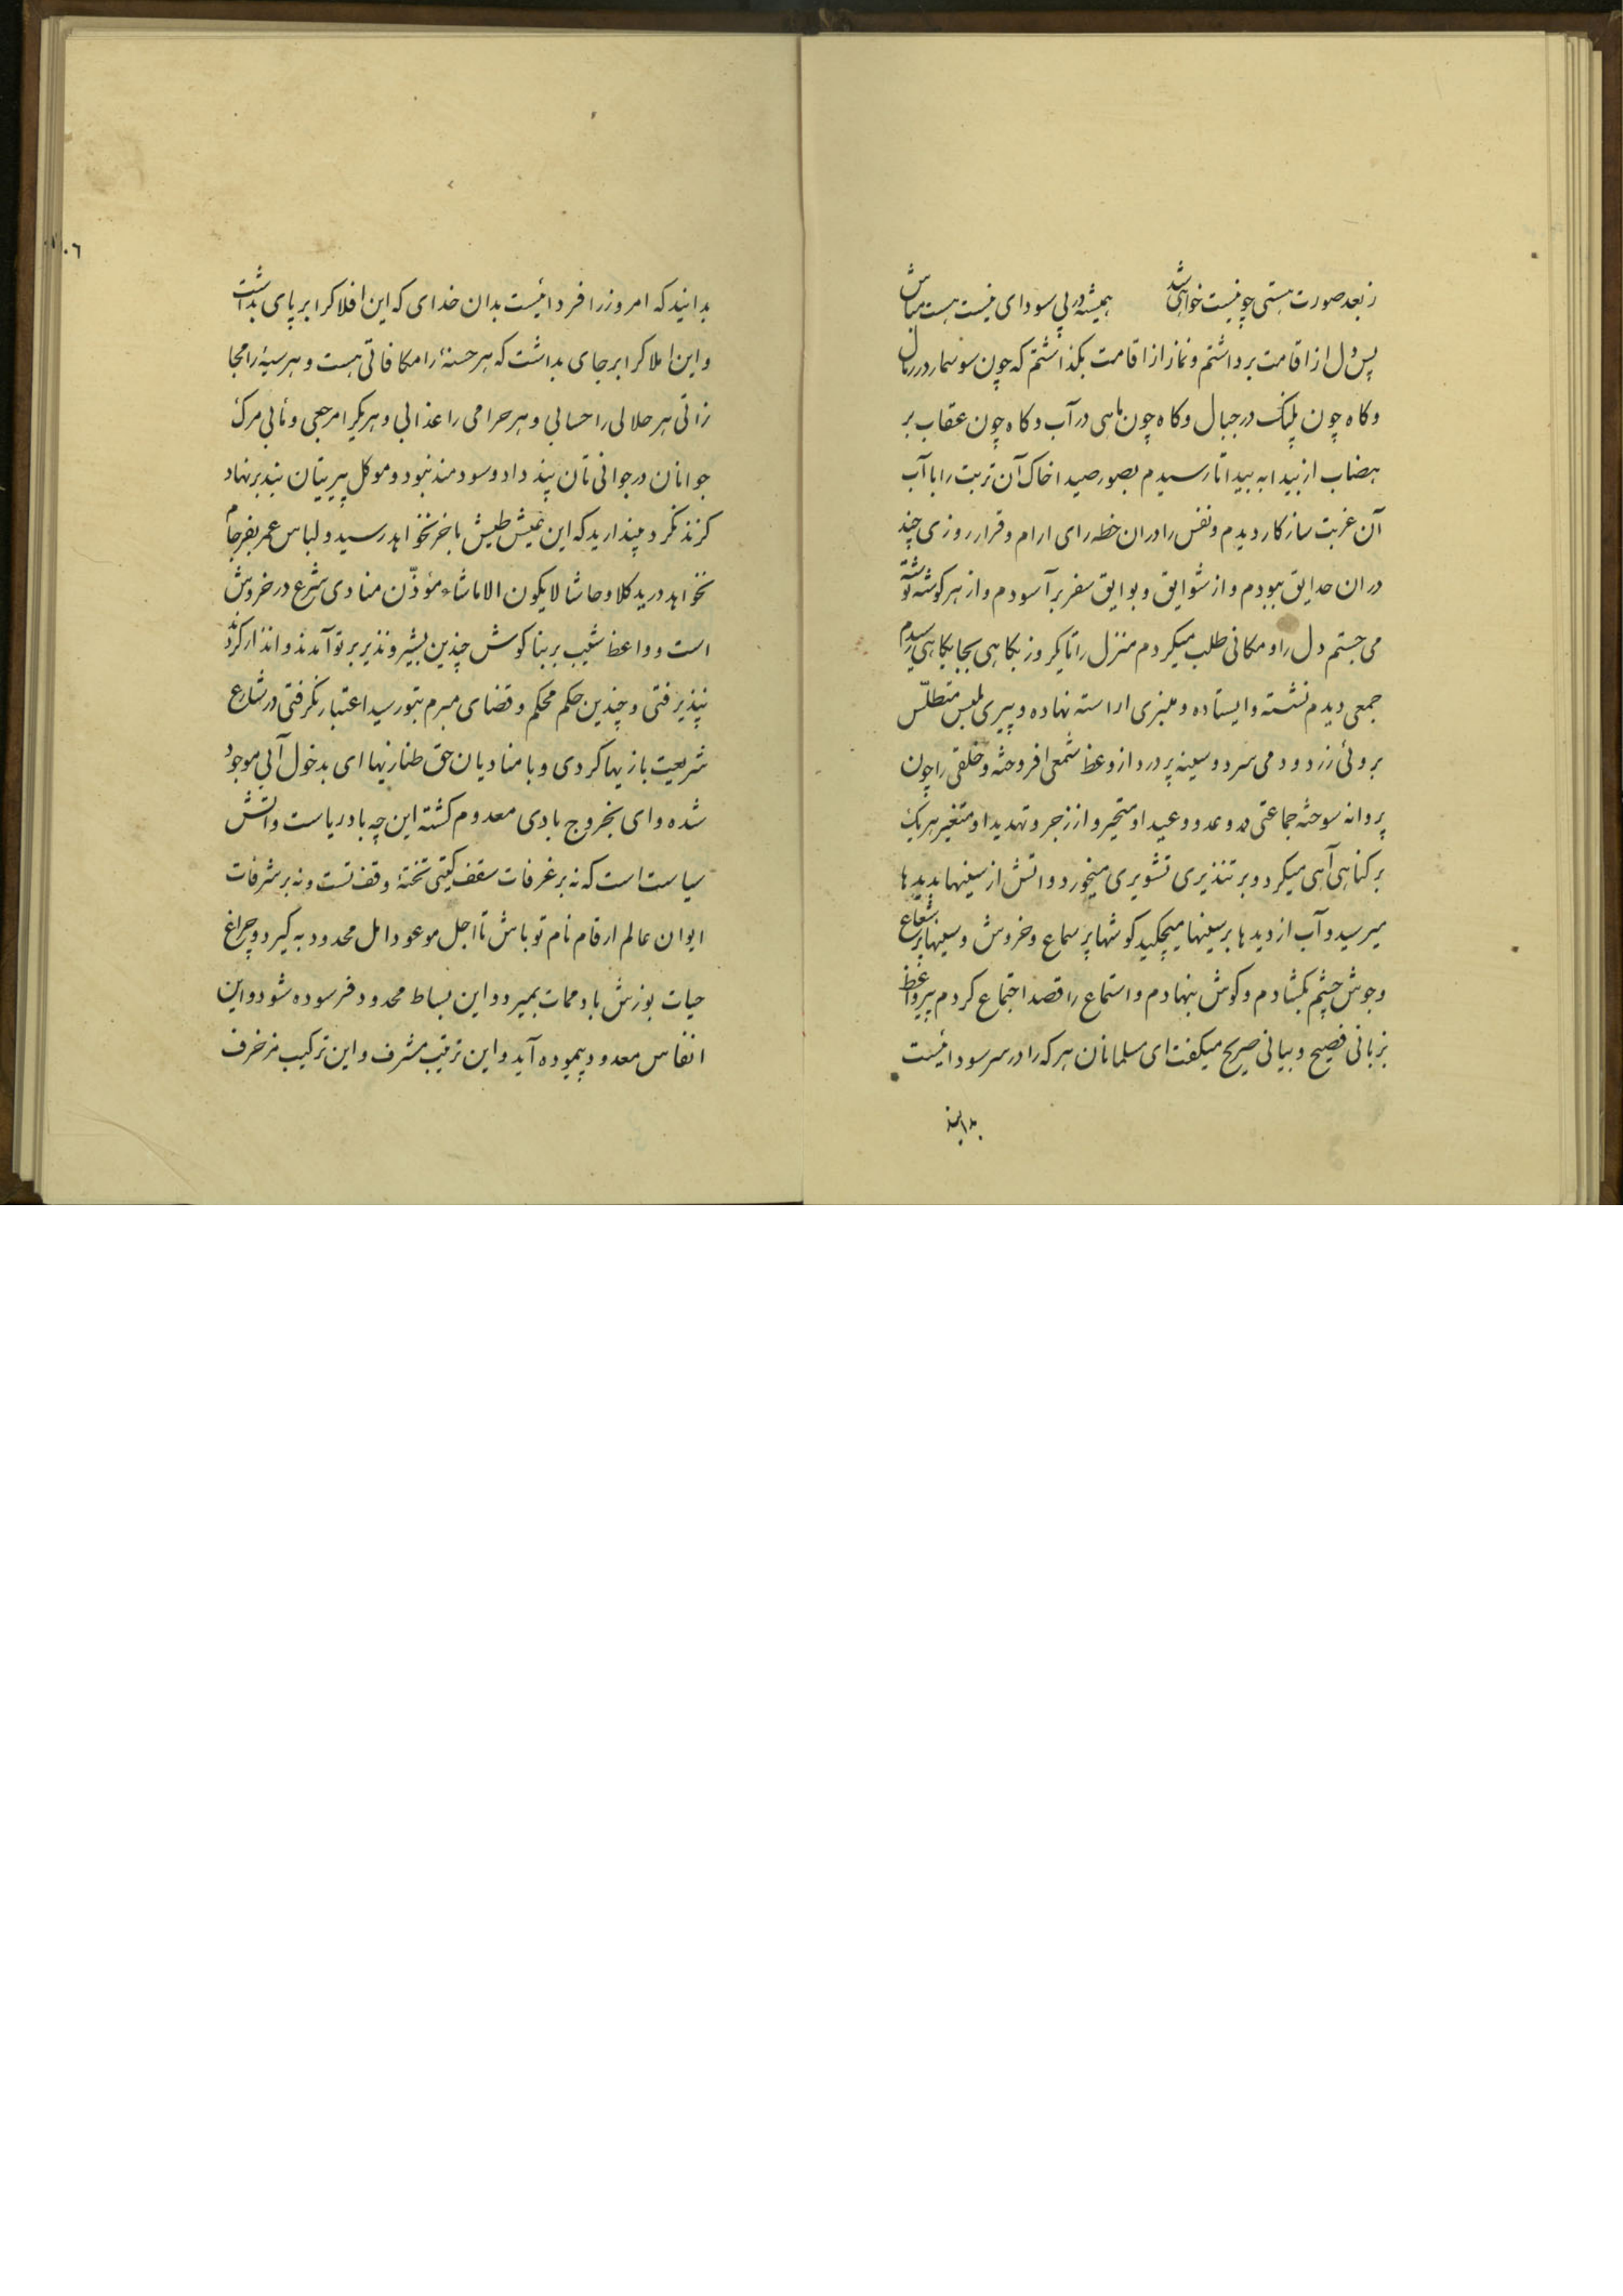 ز بعد صورت هستی چو نیست خواهی شد همیشه در پی سودای نیست هست مباش
پس دل از اقامت برداشتم و نماز از اقامت بکذاشتم که چون سوسمار در رمال
و کاه چون پلنک در جبال و کاه چون ماهی در آب و کاه چون عقاب بر
هضاب از بیدا به بیدا تا رسیدم بصور صیدا خاک آن تربت را با آب
آن غربت سازکار دیدم و نفس را در ان خطه رای ارام و قرار روزی چند
در ان حدایق ببودم و از شوایق و بوایق سفر بر آسودم و از هر کوشه توشه
می جستم دل را و مکانی طلب میکردم منزل را تا یکروز بکاهی بجایکاهی رسیدم
جمعی دیدم نشسته و ایستاده و منبری اراسته نهاده و پیری ملبس متطلّس
بروئی زرد و دمی سرد و سینه پر درد از وعظ شمعی افروخته و خلقی را چون
پروانه سوخته جماعتی در وعد و وعید او متحیر و از زجر و تهدید او متغیر هریک
بر کناهی آهی میکرد و بر تنذیری تشویری میخورد و اتش از سینها بدیدها
میرسید و آب از دیدها بر سینها میچکید کوشها پر سماع و خروش و سینها پر شعاع
و جوش چشم بکشادم و کوش بنهادم و استماع را قصد اجتماع کردم پیر واعظ
بزبانی فصیح و بیانی صریح میکفت ای مسلمانان هر که را در سر سودائیست
بدانید
۱۰۶
بدانید که امروز را فردائیست بدان خدای که این افلاکرا بر پای بداشت
و این املاکرا بر جای بداشت که هر حسنهٔ را مکافاتی هست و هر سیهٔ را مجا
زاتی هر حلالی را حسابی و هر حرامی را عذابی و هر یکی را مرجعی و مابی مرک
جوانان در جوانی تان پند داد و سودمند نبود و موکل پیریتان بند بر نهاد
کزند نکرد مپندارید که این عیش طیش باخر نخواهد رسید و لباس عمر بفرجام
نخواهد درید کلا و حاشا لا یکون الا ماشاء مؤذّن منادی شرع در خروش
است و واعظ شیب بر بناکوش چندین بشیر و نذیر بر تو آمدند و انذار کردند
نپذیرفتی و چندین حکم محکم و قضای مبرم بتو رسید اعتبار نکرفتی در شارع
شریعت بازیها کردی و با منادیان حق طنازیها ای بدخول آبی موجود
شده و ای بخروج بادی معدوم کشته این چه باد ریاست و اتش
سیاست است که نه بر غرفات سقف کیتی تختهٔ وقف تست و نه بر شرفات
ایوان عالم ارقام نام تو باش تا اجل موعود امل محدود به کیرد و چراغ
حیات بوزش باد ممات بمیرد و این بساط محدود فرسوده شود و این
انفاس معدود پیموده آید و این ترتیب مشرف و این ترکیب مزخرف